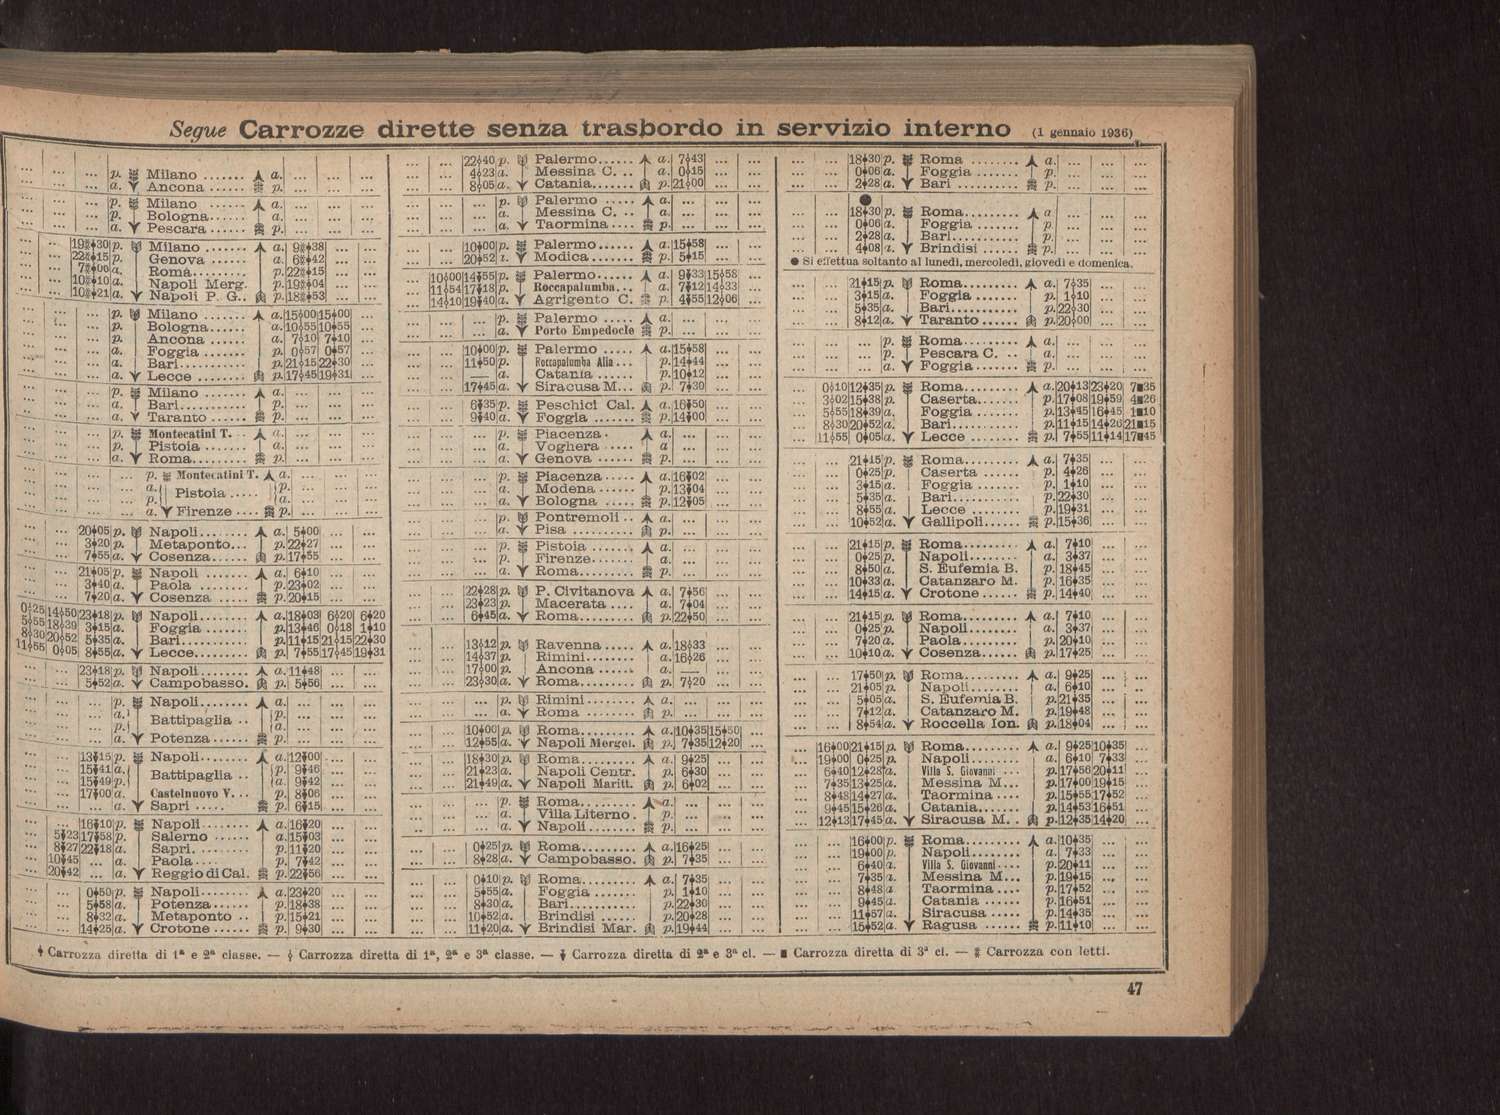 Segue Carrozze dirette senza trasbordo in servizio interno (1 gennaio 1936)
... ... ... p. Milano ....... a. ... ... ...
... ... ... a. Ancona ...... p. ... ... ...
... ... ... p. Milano ...... a. ... ... ...
... ... ... p. Bologna...... a. ... ... ...
... ... ... a. Pescara ...... p. ... ... ...
... ... 19 30 p. Milano ....... a. 9 38 ... ...
... ... 22 15 p. Genova ...... a. 6 42 ... ...
... ... 7 00 a. Roma........ p. 22 15 ... ...
... ... 10 10 a. Napoli Merg. p. 19 04 ... ...
... ... 10 21 a. Napoli P. G.. p. 18 53 ... ...
... ... ... p. Milano ....... a. 15 00 15 00 ...
... ... ... p. Bologna...... a. 10 55 10 55 ...
... ... ... p. Ancona ...... a. 7 10 7 10 ...
... ... ... a. Foggia ....... p. 0 57 0 57 ...
... ... ... a. Bari.......... p. 21 15 22 30 ...
... ... ... a. Lecce ........ p. 17 45 19 31 ...
... ... ... p. Milano ....... a. ... ... ...
... ... ... a. Bari.......... p. ... ... ...
... ... ... a. Taranto ...... p. ... ... ...
... ... ... p. Montecatini T. a. ... ... ...
... ... ... p. Pistoia ...... a. ... ... ...
... ... ... a. Roma........ p. ... ... ...
... ... ... p. Montecatini T. a. ... ... ...
... ... ... a. p. Pistoia ..... p. a. ... ... ...
... ... ... a. Firenze .... p. ... ... ...
... ... 20 05 p. Napoli....... a. 5 00 ... ...
... ... 3 20 p. Metaponto... p. 22 27 ... ...
... ... 7 55 a. Cosenza..... p. 17 55 ... ...
... ... 21 05 p. Napoli ...... a. 6 10 ... ...
... ... 3 40 a. Paola ....... p. 23 02 ... ...
... ... 7 20 a. Cosenza ..... p. 20 15 ... ...
0 25 14 50 23 18 p. Napoli....... a. 18 03 6 20 6 20
5 55 18 39 3 15 a. Foggia ...... p. 13 46 0 18 1 10
8 30 20 52 5 35 a. Bari.......... p. 11 15 21 15 22 30
11 55 0 05 8 55 a. Lecce........ p. 7 55 17 45 19 31
... ... 23 18 p. Napoli....... a. 11 48 ... ...
... ... 5 52 a. Campobasso. p. 5 56 ... ...
... ... ... p. Napoli....... a. ... ... ...
... ... ... a. p. Battipaglia .. p. a. ... ... ...
... ... ... a. Potenza ..... p. ... ... ...
... ... 13 15 p. Napoli....... a. 12 00 ... ...
... ... 15 41 a. Battipaglia .. p. 9 46 ... ...
... ... 15 49 p. a. 9 42 ... ...
... ... 17 00 a. Castelnuovo V... p. 8 06 ... ...
... ... ... a. Sapri ..... p. 6 15 ... ...
... ... 16 10 p. Napoli....... a. 16 20 ... ...
... 5 23 17 58 p. Salerno ..... a. 15 03 ... ...
... 8 27 22 18 a. Sapri........ p. 11 20 ... ...
... 10 45 ... a. Paola ..... p. 7 42 ... ...
... 20 42 ... a. Reggio di Cal. p. 22 56 ... ...
... ... 0 50 p. Napoli....... a. 23 20 ... ...
... ... 5 58 a. Potenza...... p. 18 38 ... ...
... ... 8 32 a. Metaponto .. p. 15 21 ... ...
... ... 14 25 a. Crotone ..... p. 9 30 ... ...
... ... 22 40 p. Palermo...... a. 7 43 ... ...
... ... 4 23 a. Messina C. .. a. 0 15 ... ...
... ... 8 05 a. Catania...... p. 21 00 ... ...
... ... ... p. Palermo ..... a. ... ... ...
... ... ... a. Messina C. .. a. ... ... ...
... ... ... a. Taormina.... p. ... ... ...
... ... 10 00 p. Palermo...... a. 15 58 ... ...
... ... 20 52 a. Modica....... p. 5 15 ... ...
... 10 00 14 55 p. Palermo...... a. 9 33 15 58 ...
... 11 54 17 18 p. Roccapalumba... a. 7 12 14 33 ...
... 14 10 19 40 a. Agrigento C. p. 4 55 12 06 ...
... ... ... p. Palermo ..... a. ... ... ...
... ... ... a. Porto Empedocle p. ... ... ...
... ... 10 00 p. Palermo ..... a. 15 58 ... ...
... ... 11 50 p. Roccapalumba Alia... p. 14 44 ... ...
... ... — a. Catania ...... p. 10 12 ... ...
... ... 17 45 a. Siracusa M... p. 7 30 ... ...
... ... 6 35 p. Peschici Cal. a. 16 50 ... ...
... ... 9 40 a. Foggia ....... p. 14 00 ... ...
... ... ... p. Piacenza. a. ... ... ...
... ... ... a. Voghera .... a ... ... ...
... ... ... a. Genova ...... p. ... ... ...
... ... ... p. Piacenza ..... a. 16 02 ... ...
... ... ... a. Modena ...... p. 13 04 ... ...
... ... ... a. Bologna ..... p. 12 05 ... ...
... ... ... p. Pontremoli .. a. ... ... ...
... ... ... a. Pisa ......... p. ... ... ...
... ... ... p. Pistoia ....... a. ... ... ...
... ... ... p. Firenze....... a. ... ... ...
... ... ... a. Roma........ p. ... ... ...
... ... 22 28 p. P. Civitanova a. 7 56 ... ...
... ... 23 23 p. Macerata .... a. 7 04 ... ...
... ... 6 45 a. Roma........ p. 22 50 ... ...
... ... 13 12 p. Ravenna ..... a. 18 33 ... ...
... ... 14 37 p. Rimini........ a. 16 26 ... ...
... ... 17 00 p. Ancona ...... a. — ... ...
... ... 23 30 a. Roma......... p. 7 20 ... ...
... ... ... p. Rimini........ a. ... ... ...
... ... ... a. Roma ........ p. ... ... ...
... ... 10 00 p. Roma......... a. 10 35 15 50 ...
... ... 12 55 a. Napoli Mergel. p. 7 35 12 20 ...
... ... 18 30 p. Roma......... a. 9 25 ... ...
... ... 21 23 a. Napoli Centr. p. 6 30 ... ...
... ... 21 49 a. Napoli Maritt. p. 6 02 ... ...
... ... ... p. Roma......... a. ... ... ...
... ... ... a. Villa Literno . p. ... ... ...
... ... ... a. Napoli....... p. ... ... ...
... ... 0 25 p. Roma......... a. 16 25 ... ...
... ... 8 28 a. Campobasso. p. 7 35 ... ...
... ... 0 10 p. Roma......... a. 7 35 ... ...
... ... 5 55 a. Foggia ....... p. 1 10 ... ...
... ... 8 30 a. Bari.......... p. 22 30 ... ...
... ... 10 52 a. Brindisi ...... p. 20 28 ... ...
... ... 11 20 a. Brindisi Mar. p. 19 44 ... ...
... ... 18 30 p. Roma ........ a. ... ... ...
... ... 0 06 a. Foggia ....... p. ... ... ...
... ... 2 28 a. Bari ......... p. ... ... ...
●
... ... 18 30 p. Roma......... a ... ... ...
... ... 0 06 a. Foggia ....... p. ... ... ...
... ... 2 28 a. Bari.......... p. ... ... ...
... ... 4 08 a. Brindisi ...... p. ... ... ...
● Si effettua soltanto al lunedì, mercoledì, giovedì e domenica.
... ... 21 15 p. Roma......... a. 7 35 ... ...
... ... 3 15 a. Foggia ....... p. 1 10 ... ...
... ... 5 35 a. Bari.......... p. 22 30 ... ...
... ... 8 12 a. Taranto ...... p. 20 00 ... ...
... ... ... p. Roma......... a. ... ... ...
... ... ... p. Pescara C. .. a. ... ... ...
... ... ... a. Foggia ....... p. ... ... ...
... 0 10 12 35 p. Roma......... a. 20 13 23 20 7 35
... 3 02 15 38 p. Caserta...... p. 17 08 19 59 4 26
... 5 55 18 39 a. Foggia ....... p. 13 45 16 45 1 10
... 8 30 20 52 a. Bari.......... p. 11 15 14 26 21 15
... 11 55 0 05 a. Lecce ........ p. 7 55 11 14 17 45
... ... 21 15 p. Roma......... a. 7 35 ... ...
... ... 0 25 p. Caserta ...... p. 4 26 ... ...
... ... 3 15 a. Foggia ....... p. 1 10 ... ...
... ... 5 35 a. Bari.......... p. 22 30 ... ...
... ... 8 55 a. Lecce ........ p. 19 31 ... ...
... ... 10 52 a. Gallipoli...... p. 15 36 ... ...
... ... 21 15 p. Roma......... a. 7 10 ... ...
... ... 0 25 p. Napoli........ a. 3 37 ... ...
... ... 8 50 a. S. Eufemia B. p. 18 45 ... ...
... ... 10 33 a. Catanzaro M. p. 16 35 ... ...
... ... 14 15 a. Crotone ...... p. 14 40 ... ...
... ... 21 15 p. Roma......... a. 7 10 ... ...
... ... 0 25 p. Napoli........ a. 3 37 ... ...
... ... 7 20 a. Paola......... p. 20 10 ... ...
... ... 10 10 a. Cosenza...... p. 17 25 ... ...
... ... 17 50 p. Roma......... a. 9 25 ... ...
... ... 21 05 p. Napoli....... a. 6 10 ... ...
... ... 5 05 a. S. Eufemia B. p. 21 35 ... ...
... ... 7 12 a. Catanzaro M. p. 19 48 ... ...
... ... 8 54 a. Roccella Ion. p. 18 04 ... ...
... 16 00 21 15 p. Roma......... a. 9 25 10 35 ...
... 19 00 0 25 p. Napoli....... a. 6 10 7 33 ...
... 6 40 12 28 a. Villa S. Giovanni ... p. 17 56 20 11 ...
... 7 35 13 25 a. Messina M... p. 17 00 19 15 ...
... 8 48 14 27 a. Taormina .... p. 15 55 17 52 ...
... 9 45 15 26 a. Catania...... p. 14 53 16 51 ...
... 12 13 17 45 a. Siracusa M. . p. 12 35 14 20 ...
... ... 16 00 p. Roma......... a. 10 35 ... ...
... ... 19 00 p. Napoli....... a. 7 33 ... ...
... ... 6 40 a. Villa S. Giovanni.... p. 20 11 ... ...
... ... 7 35 a. Messina M... p. 19 15 ... ...
... ... 8 48 a Taormina .... p. 17 52 ... ...
... ... 9 45 a. Catania ...... p. 16 51 ... ...
... ... 11 57 a. Siracusa ..... p. 14 35 ... ...
... ... 15 52 a. Ragusa ...... p. 11 10 ... ...
Carrozza diretta di 1ª e 2ª classe. — Carrozza diretta di 1ª, 2ª e 3ª classe. — Carrozza diretta di 2ª e 3ª cl. — ■ Carrozza diretta di 3ª cl. — Carrozza con letti.
47